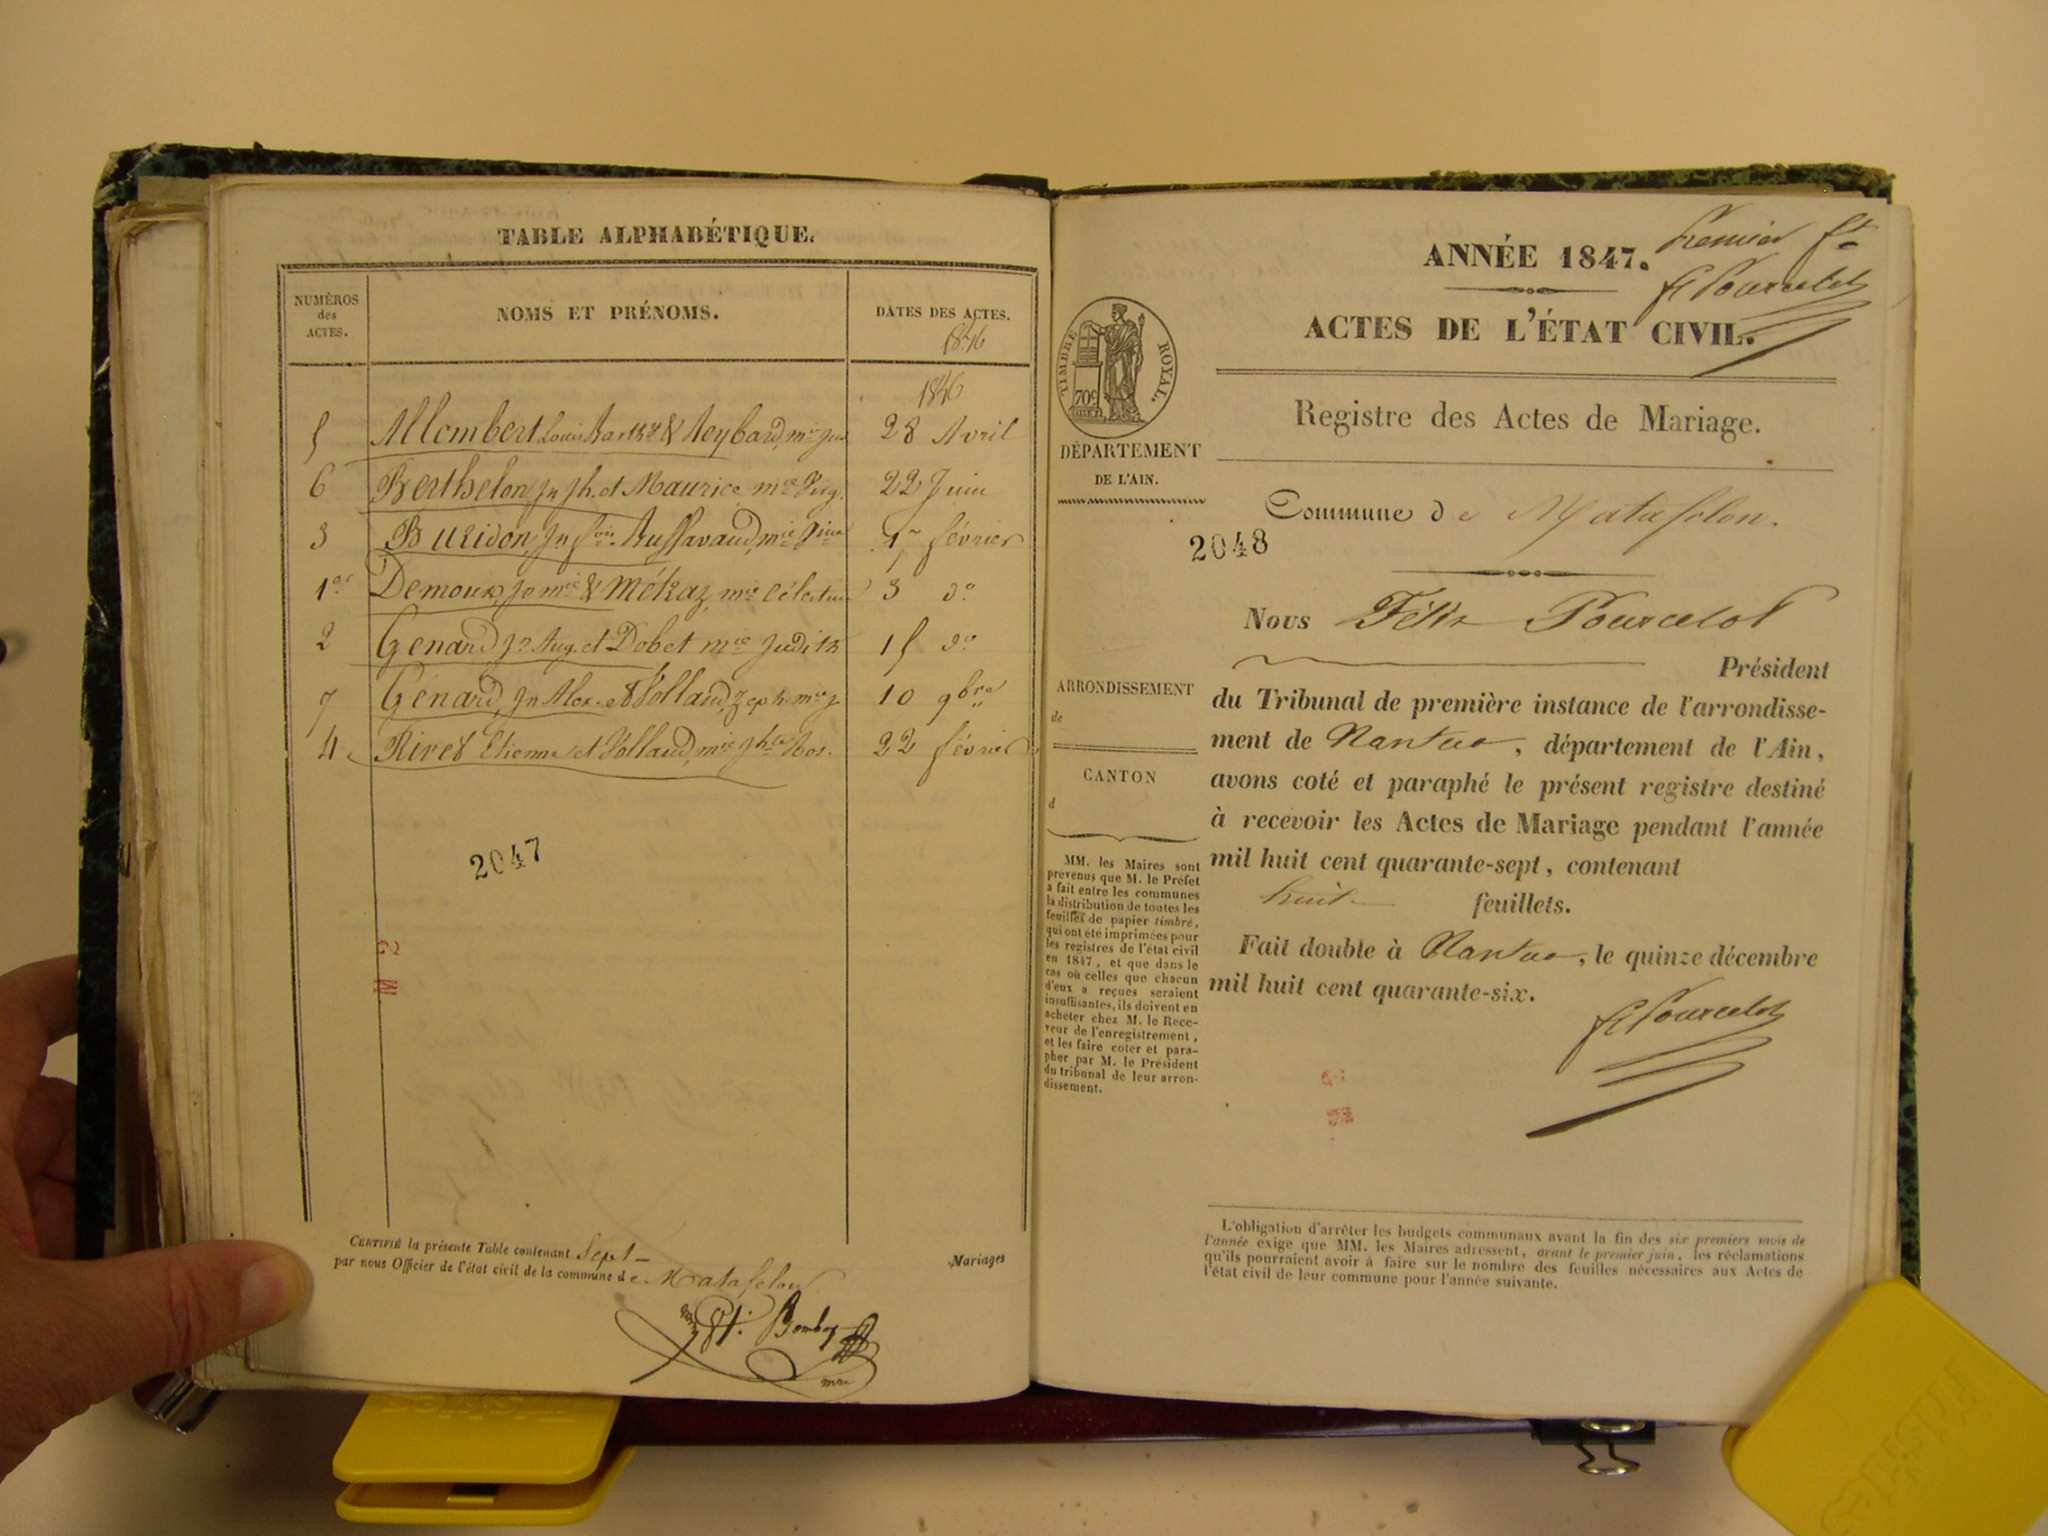 TABLE ALPHABÉTIQUE.
NUMÈROS
des
ACTES.
NOMS ET PRÉNOMS.
DATES DES ACTES.
1846
1846
5 Allombert Louis & Reybard, mie 28 Avril
6 Berthelon Jn Jh. et Maurice mie 22 Juin
3 Buridon, Jn Ruffavaud, mie 1er février
1er Demoux, & Mékaz, mie Célestine 3 do
2 Génard Jn Aug. et Dobet mie Judith 15 do
7 Génard, Jn Alex. & Volland, mie 10 9bre
4 Rivet Etienne et Volland, mie 22 février
2047
CERTIFIÉ la présente Table contenant Sept Mariages
par nous Officier de l'état civil de la commune de Matafelon
ANNÉE 1847.
Premier ft
F Pourcelot
ACTES DE L'ÉTAT CIVIL.
Registre des Actes de Mariage.
TIMBRE ROYAL.
70c
DÉPARTEMENT
DE L'AIN.
Commune de Matafelon.
2048
Nous Félix Pourcelot
Président
du Tribunal de première instance de l'arrondisse-
ment de Nantua, département de l'Ain,
avons coté et paraphé le présent registre destiné
à recevoir les Actes de Mariage pendant l'année
mil huit cent quarante-sept, contenant
huit feuillets.
Fait double à Nantua, le quinze décembre
mil huit cent quarante-six.
F Pourcelot
ARRONDISSEMENT
de
CANTON
d
MM. les Maires sont
prévenus que M. le Préfet
a fait entre les communes
la distribution de toutes les
feuilles de papier timbré,
qui ont été imprimées pour
les registres de l'état civil
en 1847, et que dans le
cas où celles que chacun
d'eux a reçues seraient
insuffisantes, ils doivent en
acheter chez M. le Rece-
veur de l'enregistrement,
et les faire coter et para-
pher par M. le Président
du tribunal de leur arron-
dissement.
L'obligation d'arrêter les budgets communaux avant la fin des six premiers mois de
l'année exige que MM. les Maires adressent, avant le premier juin, les réclamations
qu'ils pourraient avoir à faire sur le nombre des feuilles nécessaires aux Actes de
l'état civil de leur commune pour l'année suivante.